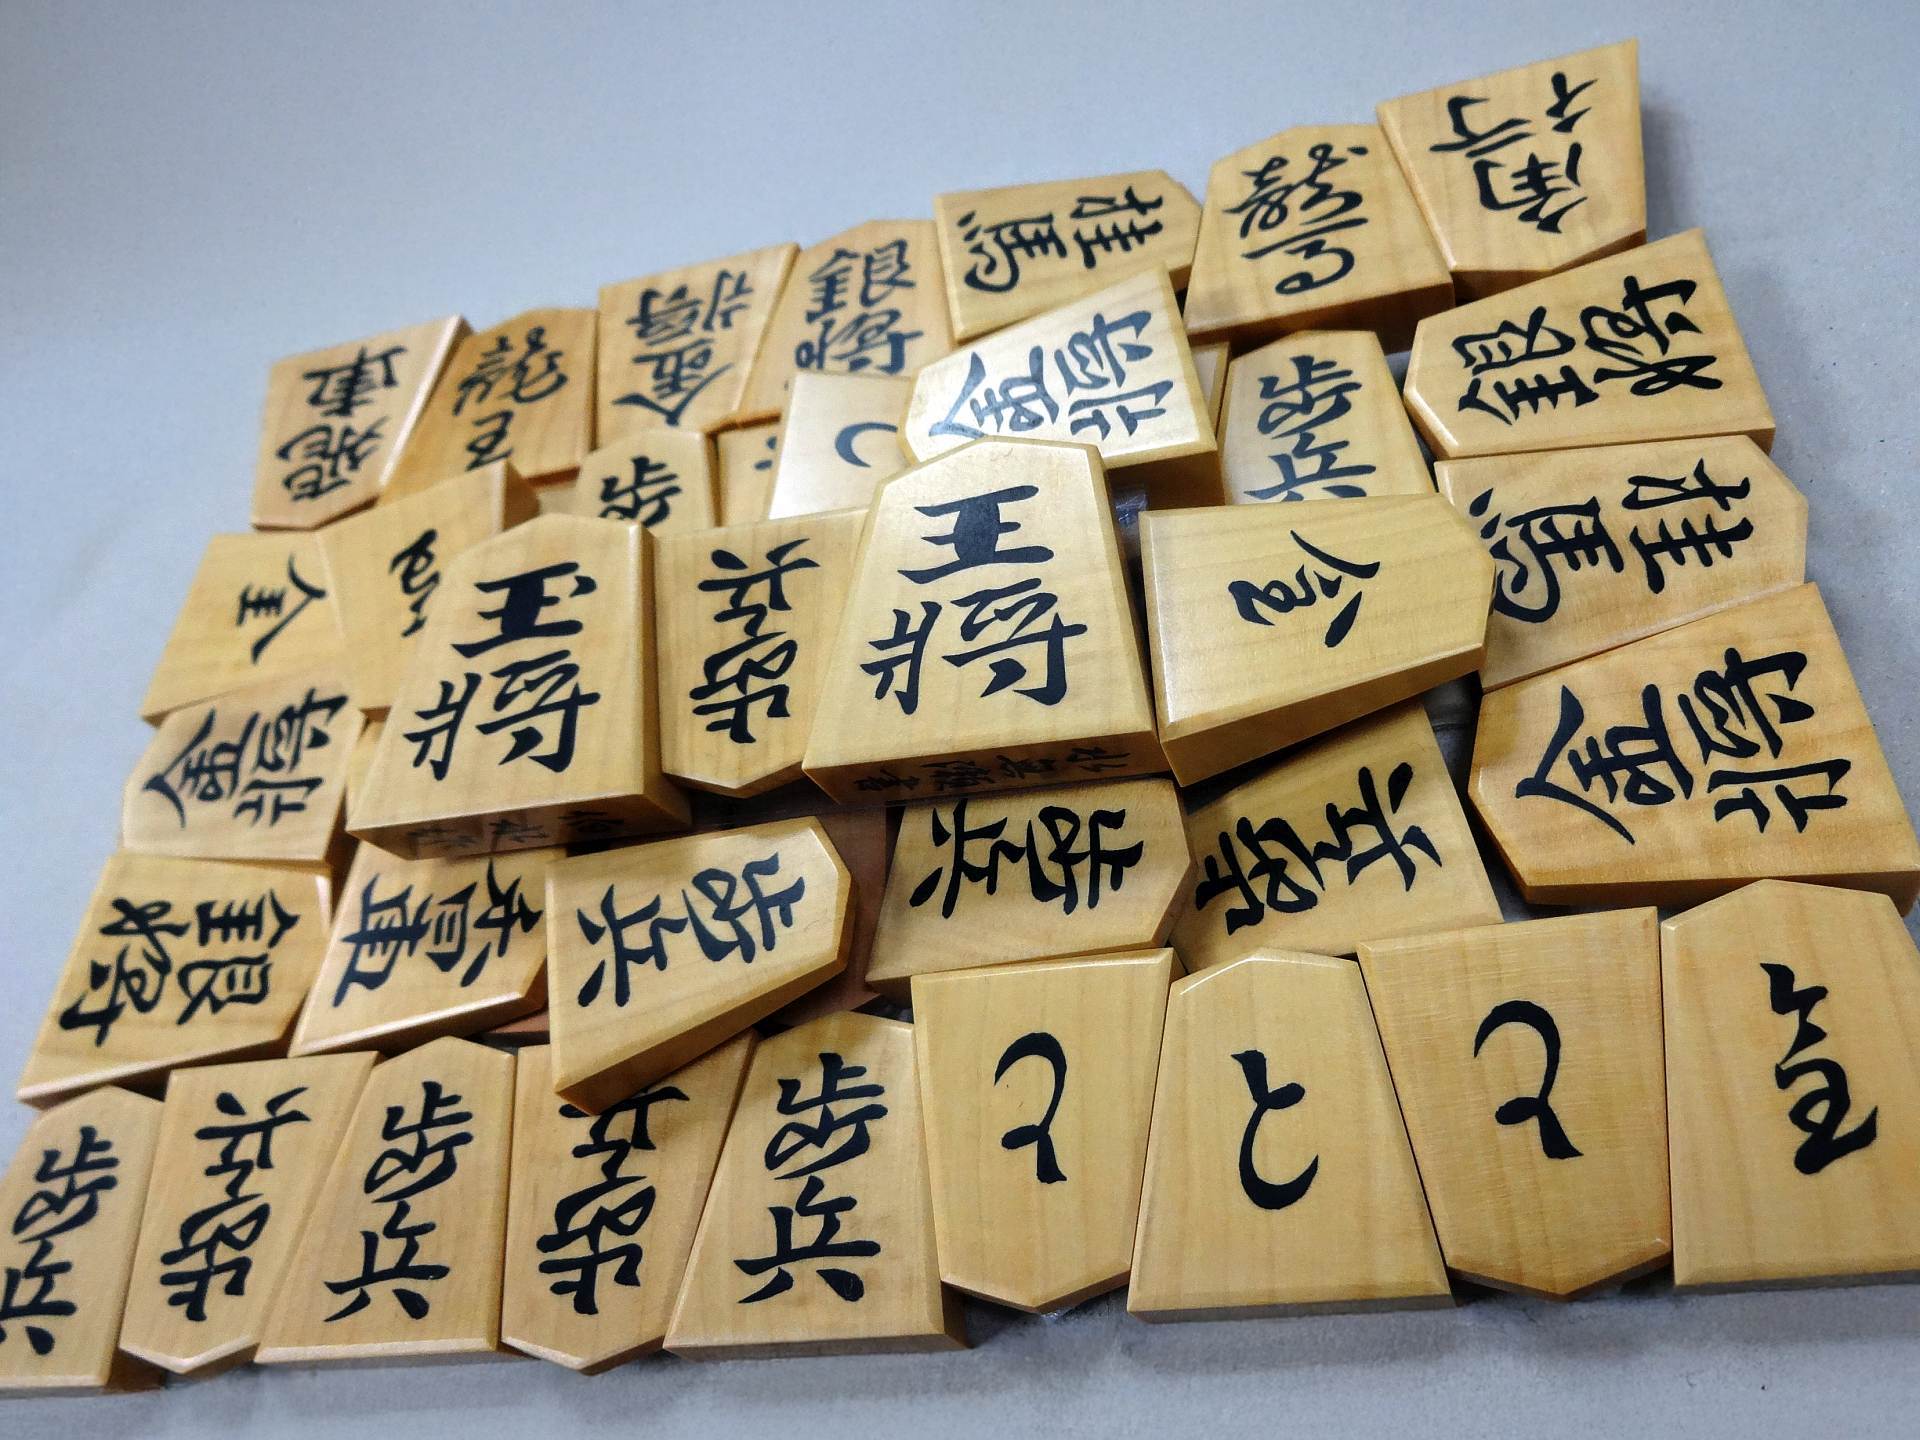 香車
龍王
金将
銀将
桂馬
龍馬
香車
金将
歩兵
銀将
歩
と
桂馬
金
玉将
歩兵
王将
金
金将
金将
銀将
香車
歩兵
歩兵
歩兵
歩兵
歩兵
歩兵
歩兵
歩兵
と
と
と
全